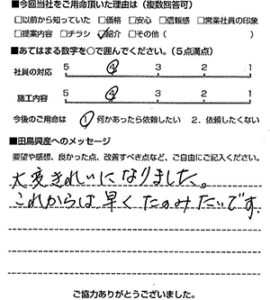 ■今回当社をご用命頂いた理由は（複数回答可）
□以前から知っていた □価格 □安心 □信頼感 □営業社員の印象
□提案内容 □チラシ ☑紹介 □その他（ ）
■あてはまる数字を○で囲んでください。（５点満点）
社員の対応 5 ④ 3 2 1
施工内容 5 ④ 3 2 1
今後のご用命は ① 何かあったら依頼したい 2. 依頼したくない
■田島興産へのメッセージ
要望や感想、良かった点、改善すべき点など、ご自由にご記入ください。
大変きれいになりました。
これからは早くたのみたいです.
ご協力ありがとうございました。